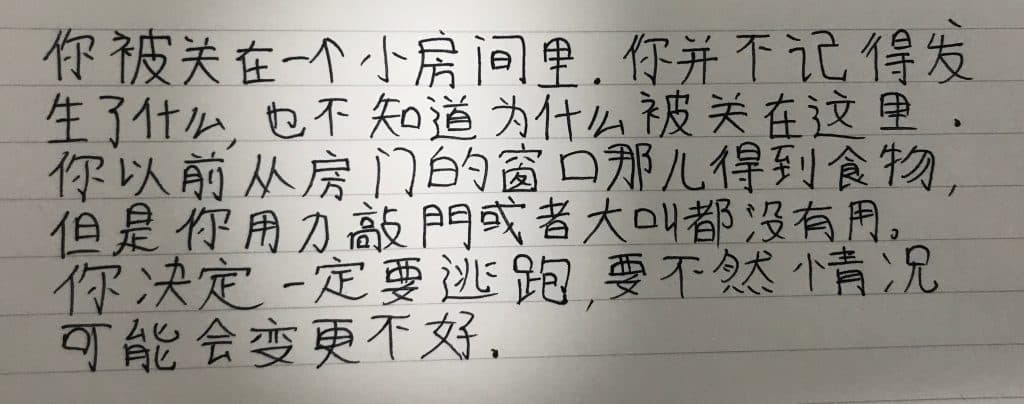 你被关在一个小房间里.你并不记得发
生了什么,也不知道为什么被关在这里.
你以前从房门的窗口那儿得到食物,
但是你用力敲門或者大叫都没有用。
你决定一定要逃跑,要不然情况
可能会变更不好.